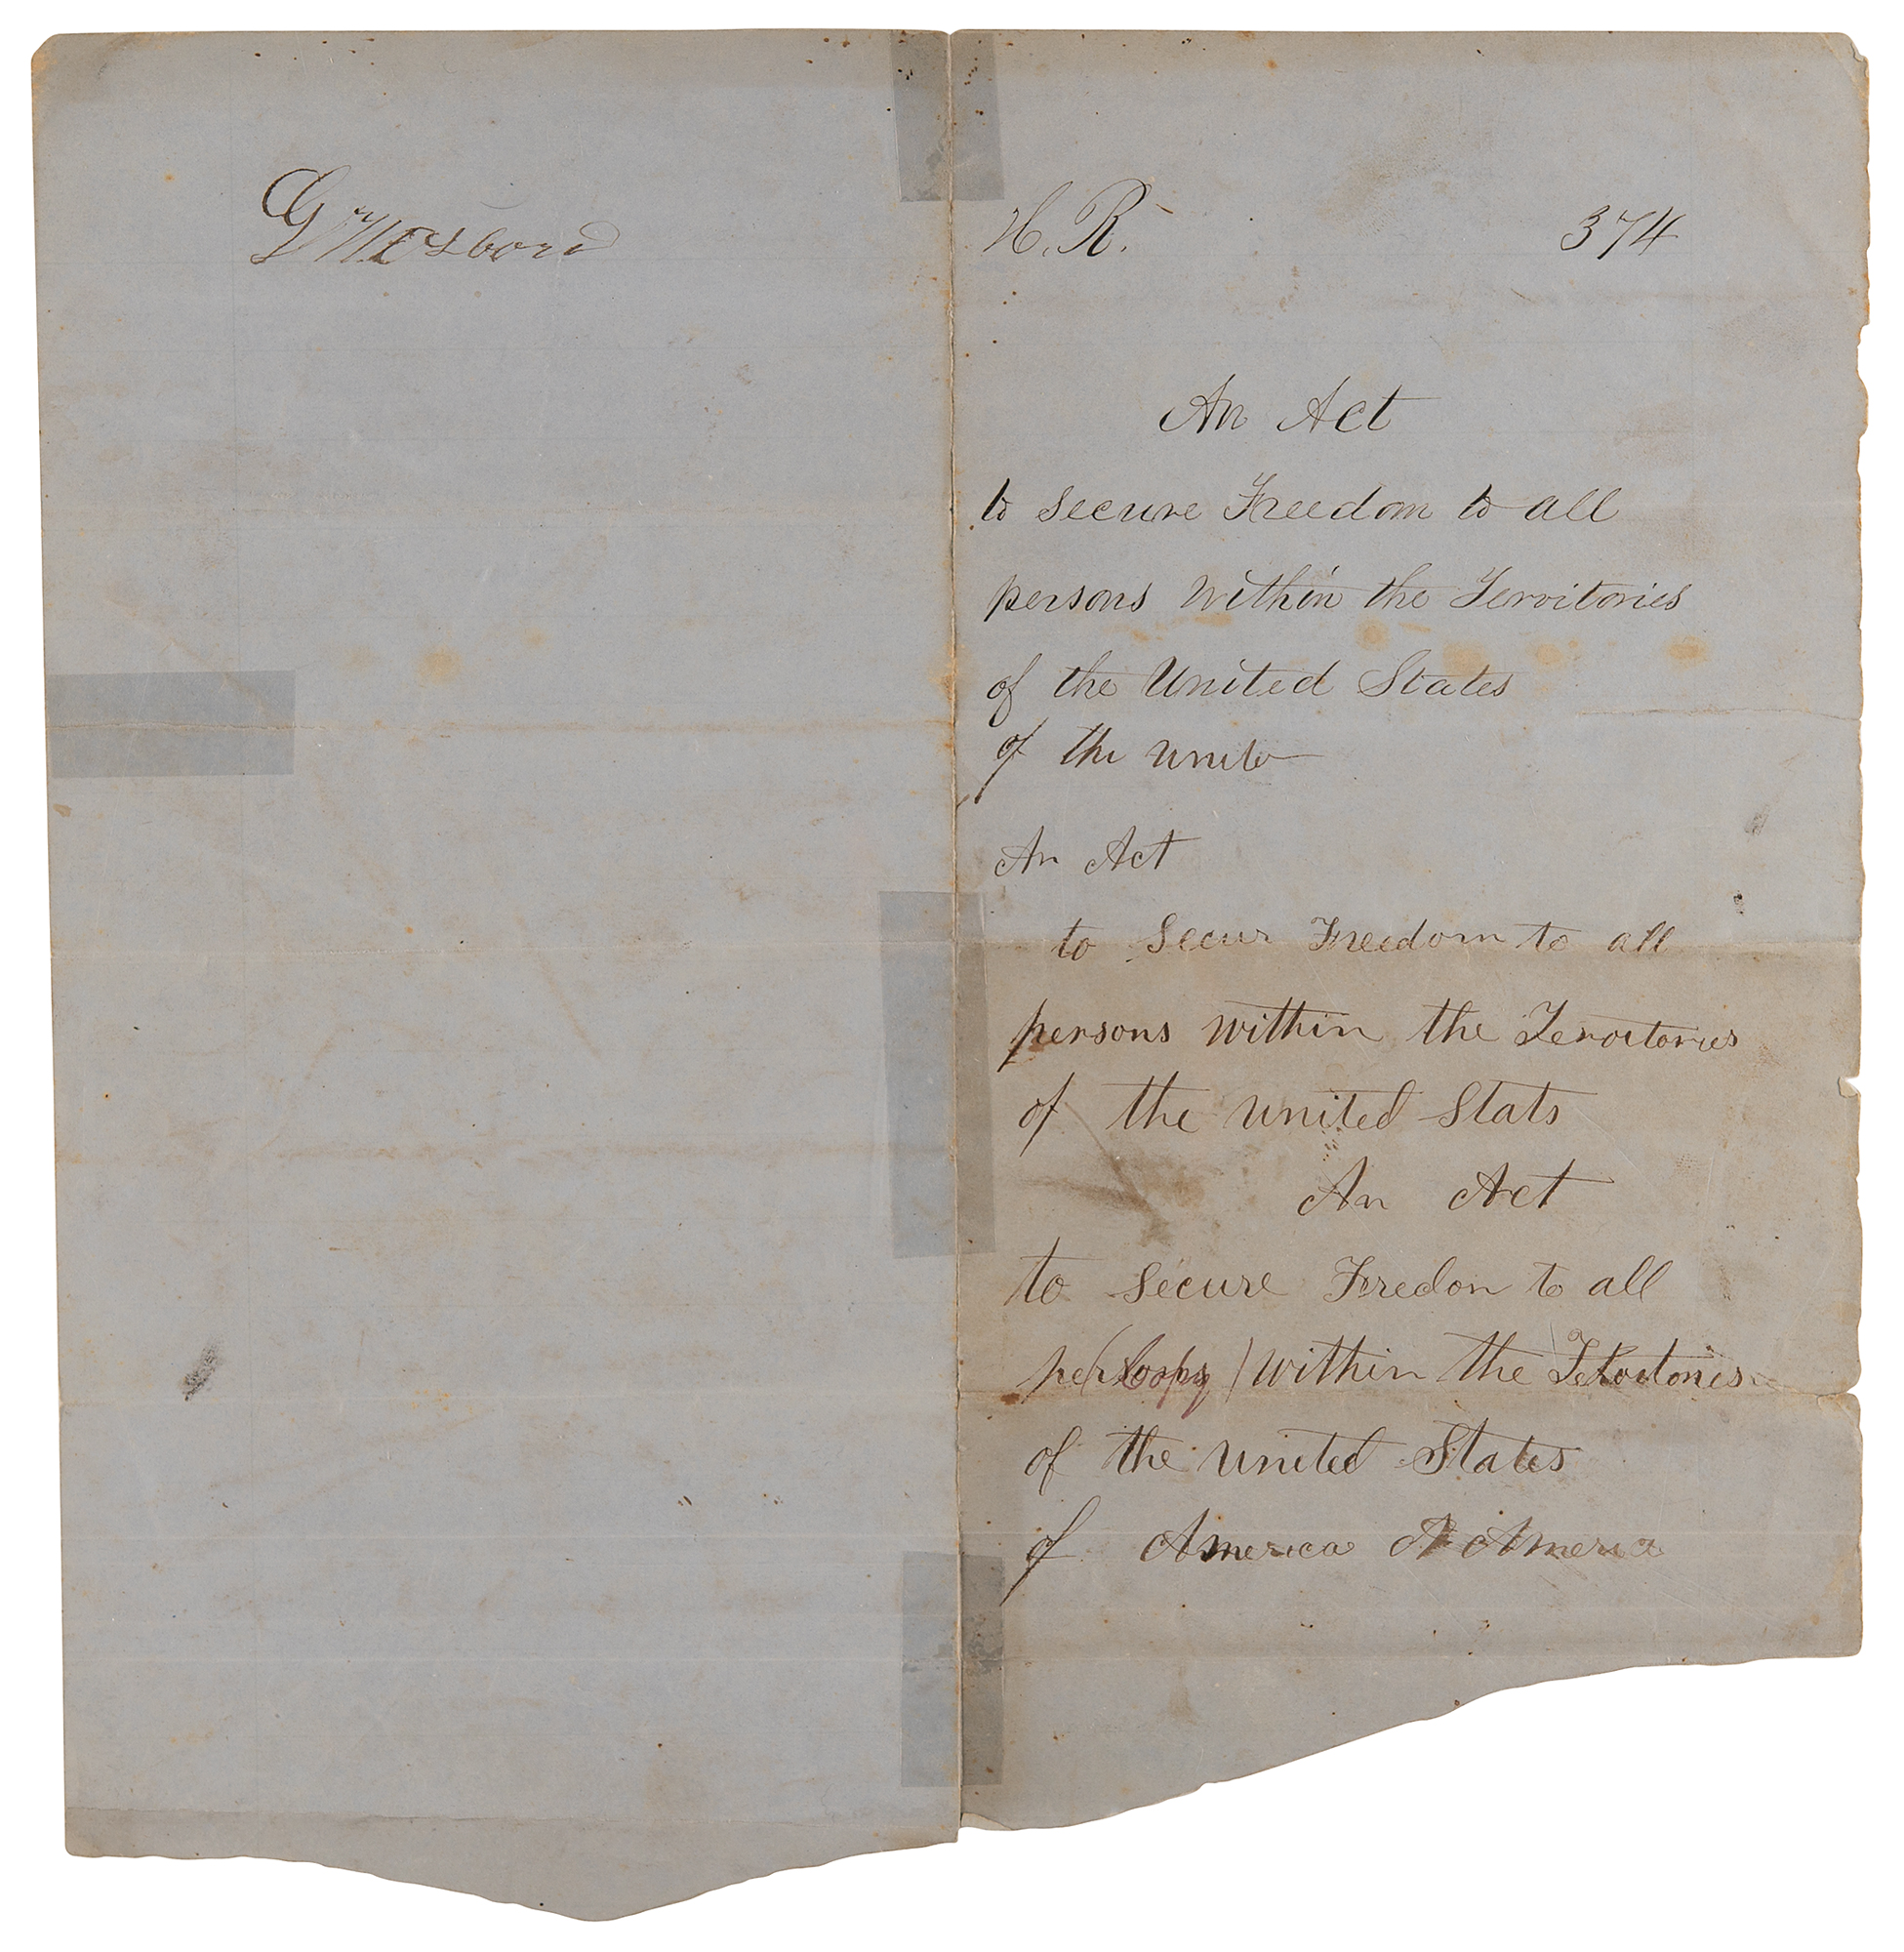 H. R. 374
An Act
to secure Freedom to all
persons within the Territories
of the United States
of the unite
An Act
to Secur Freedom to all
persons within the Teroitories
of the united Stats
An Act
to secure Fredon to all
(Copy) within the
of the united States
of America A America